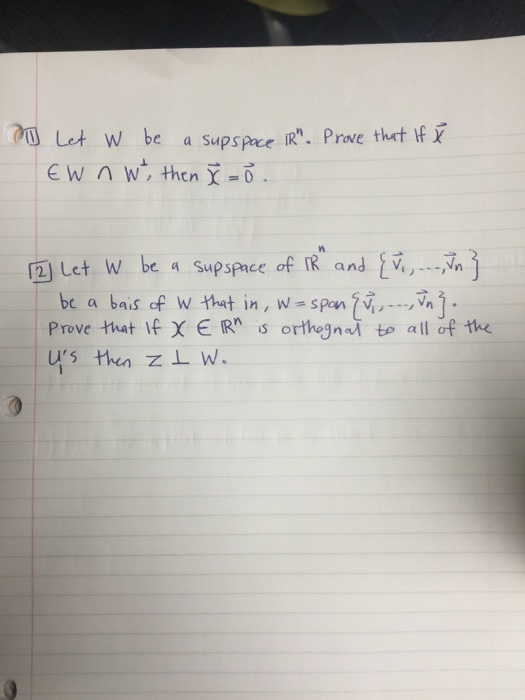 [1] Let W be a supspace ℝⁿ. Prove that if x⃗
∈ W ∩ W⊥, then x⃗ = 0⃗.
[2] Let W be a supspace of ℝⁿ and {v⃗₁, ---, v⃗ₙ}
be a bais of W that in, W = span {v⃗₁, ---, v⃗ₙ}.
Prove that if X ∈ ℝⁿ is orthegnal to all of the
u's then z ⊥ W.